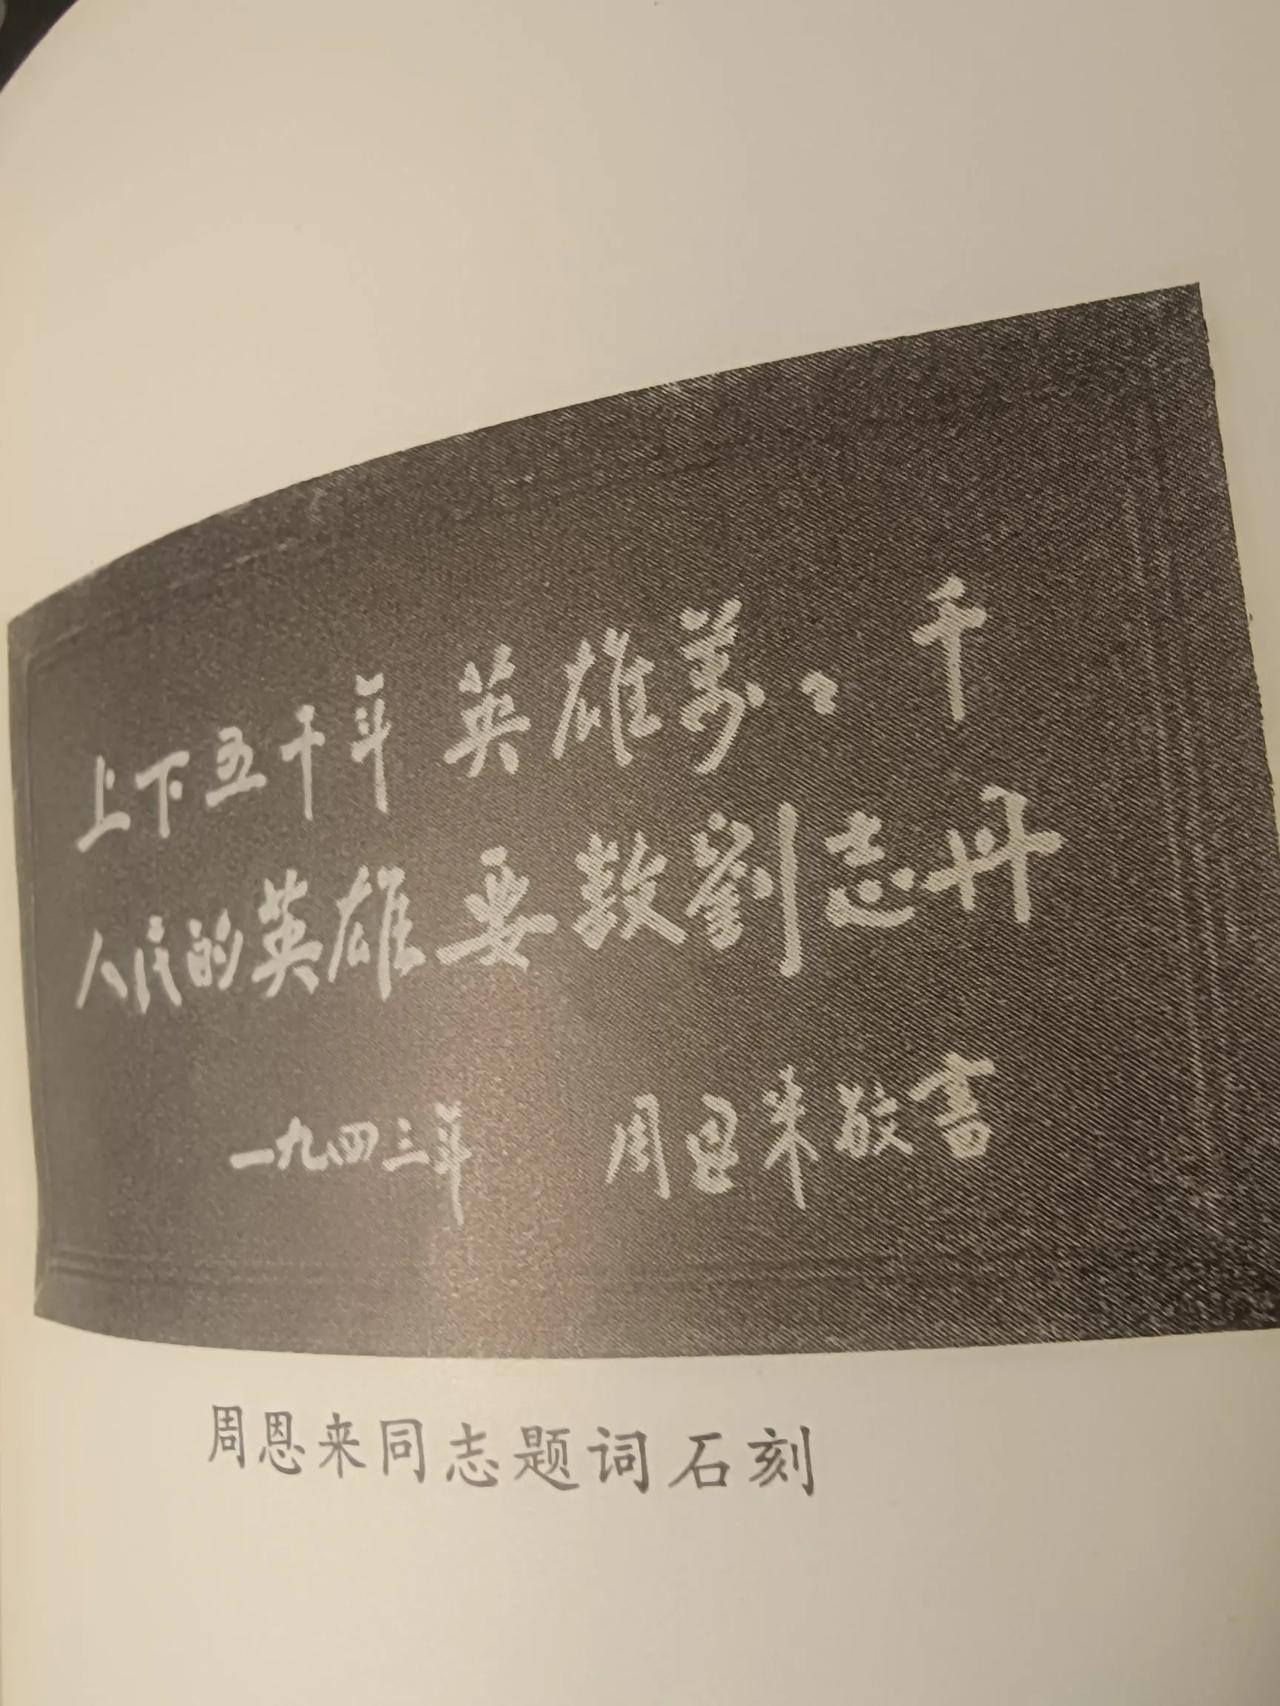 上下五千年 英雄萬〻千
人民的英雄 要数劉志丹
一九四三年 周恩来敬書
周恩来同志题词石刻